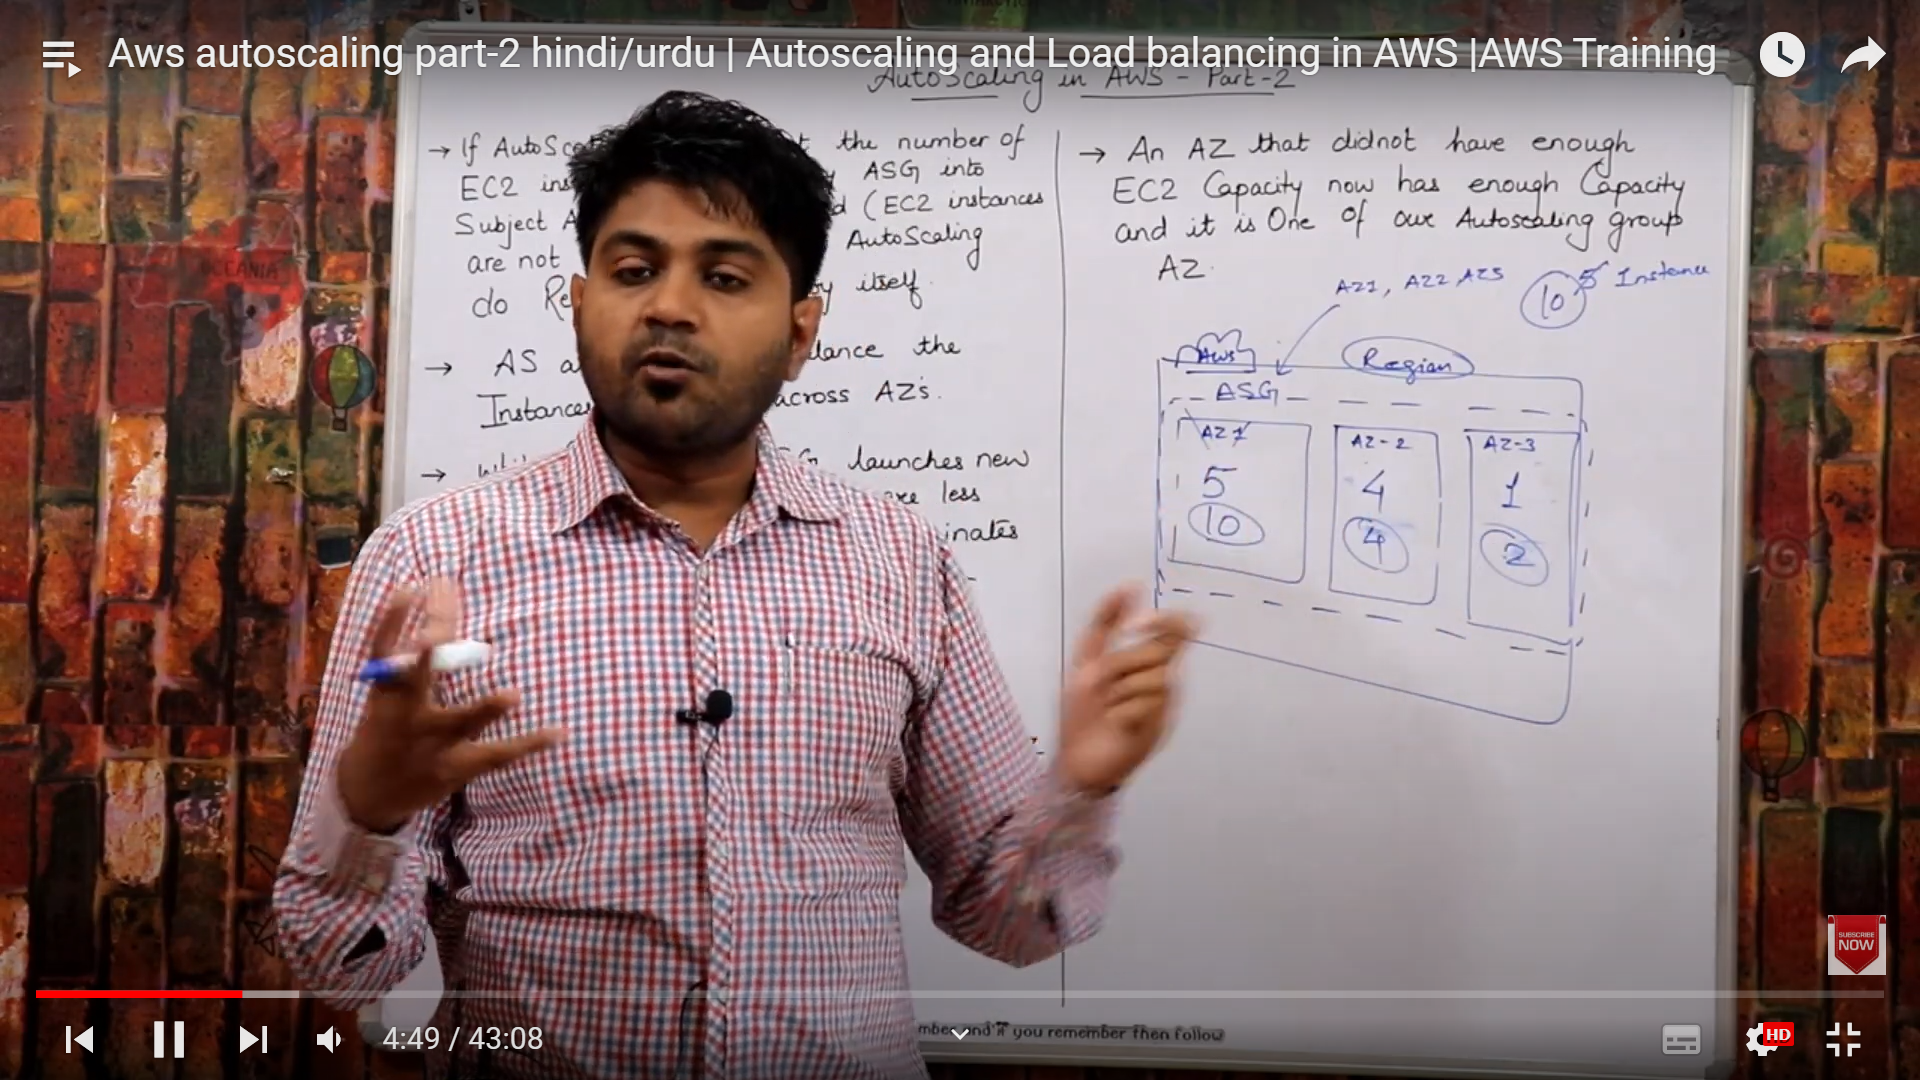 Aws autoscaling part-2 hindi/urdu | Autoscaling and Load balancing in AWS |AWS Training
AutoScaling in AWS - Part-2
→ If
the number of
EC2
ASG into
Subject
(EC2 instances
are not
AutoScaling
do
by itself.
→ AS
the
Instances
across AZ's.
→
launches new
less
→ An AZ that didnot have enough
EC2 Capacity now has enough Capacity
and it is One of our Autoscaling group
AZ.
AZ1, AZ2, AZ3
10
5 Instance
AWS
Region
ASG
AZ1
5
10
AZ-2
4
4
AZ-3
1
2
OCEANIA
SUBSCRIBE
NOW
4:49 / 43:08
and if you remember then follow
HD